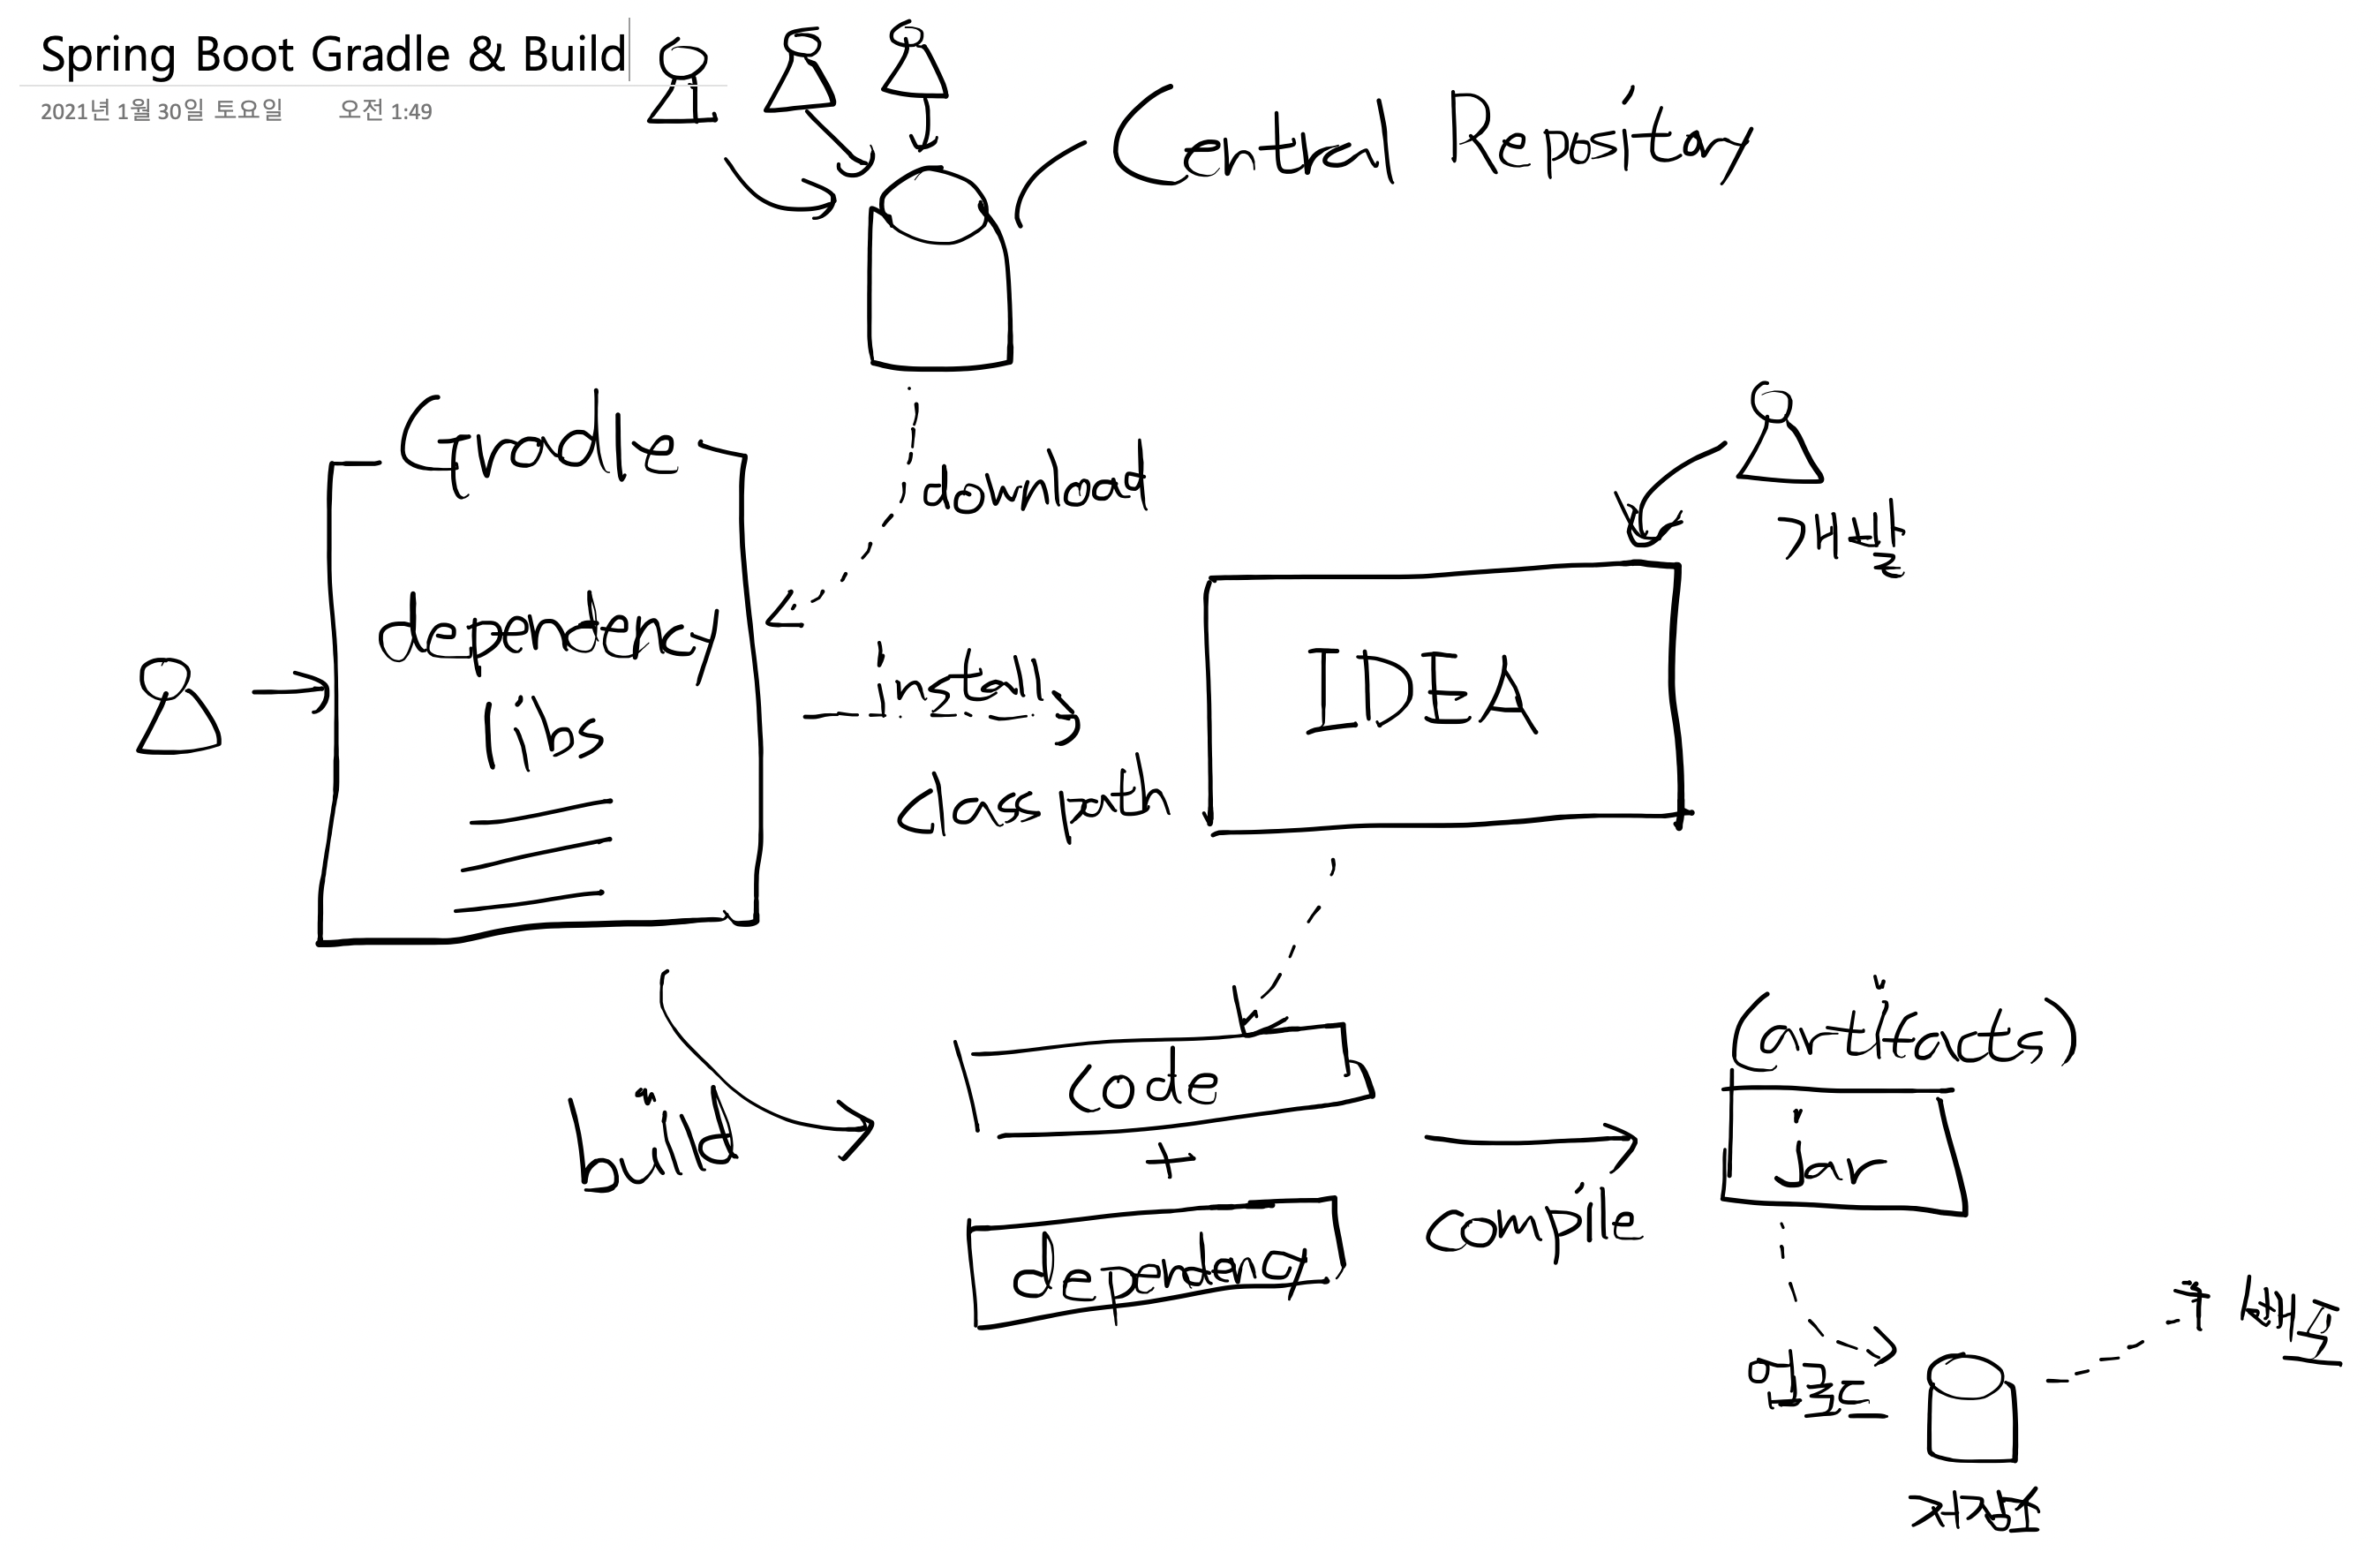 Spring Boot Gradle & Build
2021년 1월 30일 토요일 오전 1:49
Central Repository
Gradle
dependency
libs
download
install
class path
개발
IDEA
build
code
+
dependency
compile
(artifacts)
jar
업로드
저장소
배포